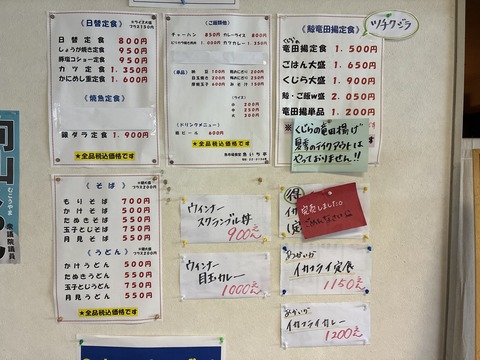 《日替定食》
ライス大盛
プラス150円
日替定食 800円
しょうが焼き定食 950円
豚塩コショー定食 950円
カツ定食 1,350円
かにめし重定食 1,600円
《焼魚定食》
銀ダラ定食 1,900円
★全品税込価格です
《ご飯類他》
チャーハン 850円
カレーライス 800円
カツカレー 1,350円
《単品》
納豆
玉焼き
厚焼玉子
《ライス》
小
中
大
《ドリンクメニュー》
瓶ビール 600円
★全品税込価格です
《鯨竜田揚定食》
ツチクジラ
くじらの
竜田揚定食 1,500円
ごはん大盛 1,650円
くじら大盛 1,900円
鯨・ご飯W盛 2,050円
竜田揚単品 1,200円
くじらの竜田揚げ
夏季のテイクアウトは
やっておりません!!
《そば》
プラス200円
もりそば 700円
かけそば 500円
たぬきそば 550円
玉子とじそば 750円
月見そば 550円
《うどん》
プラス200円
かけうどん 500円
たぬきうどん 550円
玉子とじうどん 750円
月見うどん 550円
★全品税込価格です
ウィンナー
スクランブル丼
900えん
ウィンナー
目玉カレー
1000えん
得
完売しました。
ごめんなさい
あかいか
イカフライ定食
1150えん
あかいか
イカフライカレー
1200えん
向山
むこうやま
衆議院議員